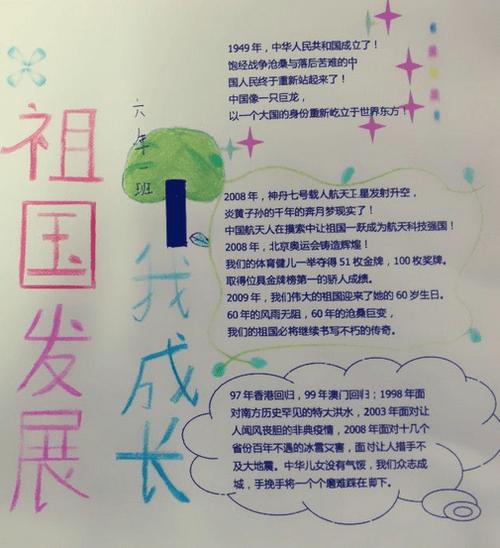 祖国发展
我成长
六年一班
1949年，中华人民共和国成立了！
饱经战争沧桑与落后苦难的中
国人民终于重新站起来了！
中国像一只巨龙，
以一个大国的身份重新屹立于世界东方！
2008年，神丹七号载人航天工星发射升空，
炎黄子孙的千年的奔月梦现实了！
中国航天人在摸索中让祖国一跃成为航天科技强国！
2008年，北京奥运会铸造辉煌！
我们的体育健儿一举夺得51枚金牌，100枚奖牌。
取得位具金牌榜第一的骄人成绩。
2009年，我们伟大的祖国迎来了她的60岁生日。
60年的风雨无阻，60年的沧桑巨变，
我们的祖国必将继续书写不朽的传奇。
97年香港回归，99年澳门回归；1998年面
对南方历史罕见的特大洪水，2003年面对让
人闻风丧胆的非典疫情，2008年面对十几个
省份百年不遇的冰雪又害，面对让人措手不
及大地震。中华儿女没有气馁，我们众志成
城，手挽手将一个个磨难踩在脚下。